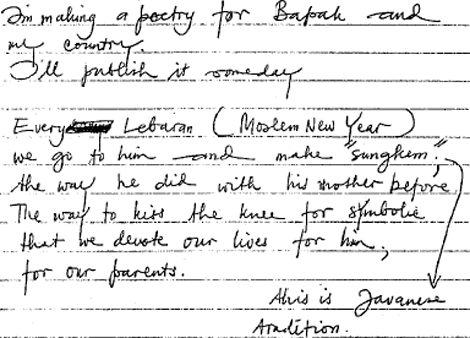 I'm making a poetry for Bapak and
my country.
I'll publish it someday
Every Lebaran (Moslem New Year)
we go to him and make "sungkem",
the way he did with his mother before
The way to kiss the knee for symbolic
that we devote our lives for him,
for our parents.
this is Javanese
tradition.